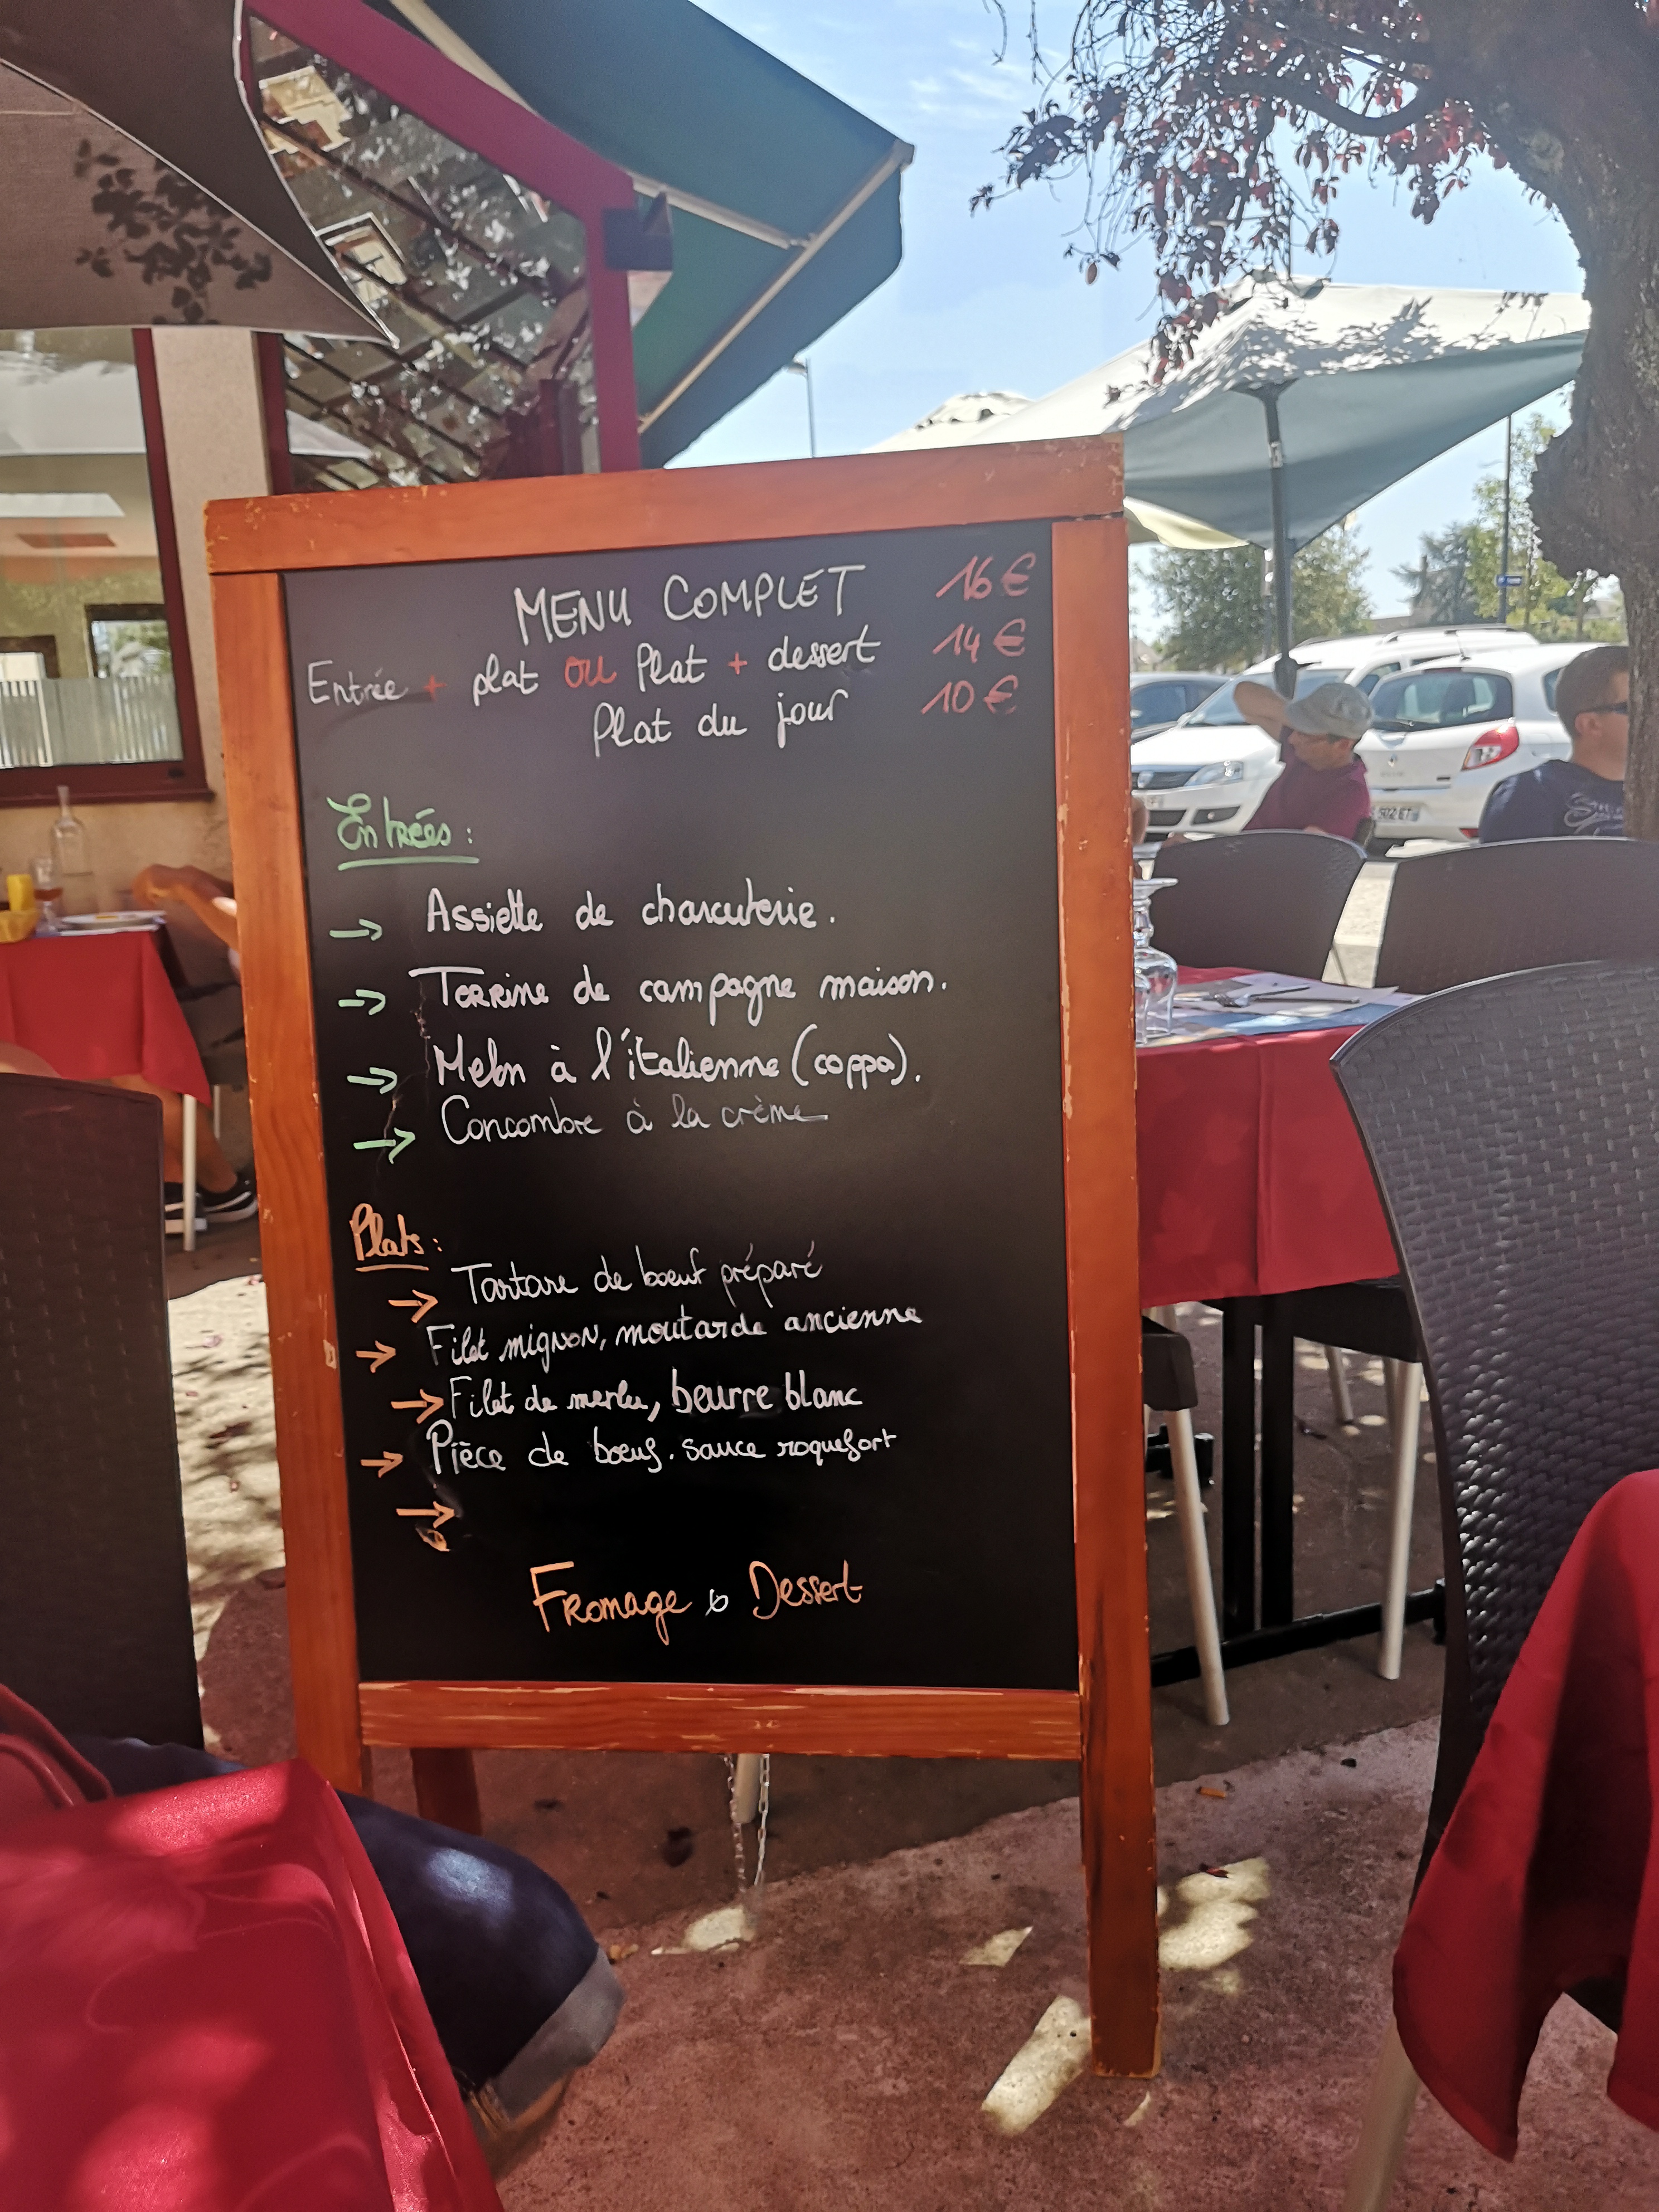 MENU COMPLET 16€
Entrée + plat OU Plat + dessert 14€
Plat du jour 10€
Entrées :
→ Assiette de charcuterie.
→ Terrine de campagne maison.
→ Melon à l'italienne (coppa).
→ Concombre à la crème
Plats :
→ Tartare de boeuf préparé
→ Filet mignon, moutarde ancienne
→ Filet de merlu, beurre blanc
→ Pièce de boeuf. sauce roquefort
→
Fromage & Dessert